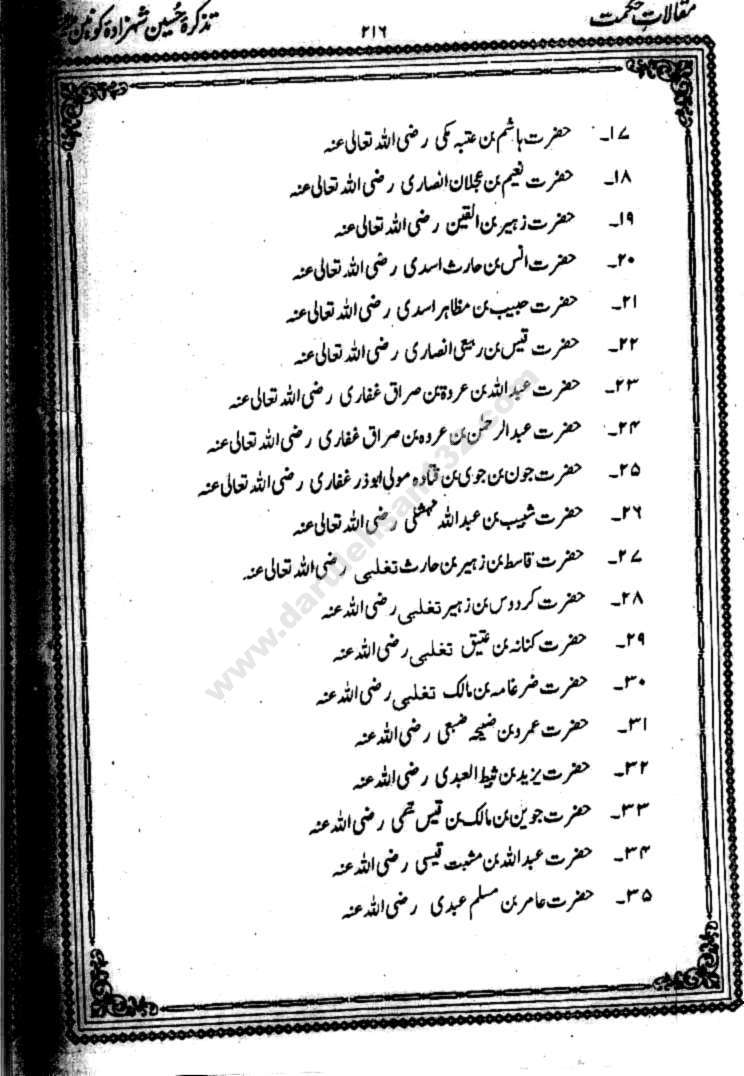 مقالاتِ حکمت
۲۱۶
تذکرۂ حُسین شہزادۂ کونین
۱۷۔ حضرت ہاشم بن عتبہ مکی رضی اللہ تعالیٰ عنہ
۱۸۔ حضرت نعیم بن عجلان انصاری رضی اللہ تعالیٰ عنہ
۱۹۔ حضرت زہیر بن القین رضی اللہ تعالیٰ عنہ
۲۰۔ حضرت انس بن حارث اسدی رضی اللہ تعالیٰ عنہ
۲۱۔ حضرت حبیب بن مظاہر اسدی رضی اللہ تعالیٰ عنہ
۲۲۔ حضرت قیس بن ربعی انصاری رضی اللہ تعالیٰ عنہ
۲۳۔ حضرت عبد اللہ بن عروۃ بن صراق غفاری رضی اللہ تعالیٰ عنہ
۲۴۔ حضرت عبد الرحمٰن بن عروہ بن صراق غفاری رضی اللہ تعالیٰ عنہ
۲۵۔ حضرت جون بن جوی بن قتادہ مولی ابوذر غفاری رضی اللہ تعالیٰ عنہ
۲۶۔ حضرت شبیب بن عبد اللہ نہشلی رضی اللہ تعالیٰ عنہ
۲۷۔ حضرت قاسط بن زہیر بن حارث تغلبی رضی اللہ تعالیٰ عنہ
۲۸۔ حضرت کردوس بن زہیر تغلبی رضی اللہ عنہ
۲۹۔ حضرت کنانہ بن عتیق تغلبی رضی اللہ عنہ
۳۰۔ حضرت ضرغامہ بن مالک تغلبی رضی اللہ عنہ
۳۱۔ حضرت عمرو بن ضبیحہ ضبعی رضی اللہ عنہ
۳۲۔ حضرت یزید بن ثبیط العبدی رضی اللہ عنہ
۳۳۔ حضرت جوین بن مالک بن قیس تمی رضی اللہ عنہ
۳۴۔ حضرت عبد اللہ بن مثبت قیسی رضی اللہ عنہ
۳۵۔ حضرت عامر بن مسلم عبدی رضی اللہ عنہ